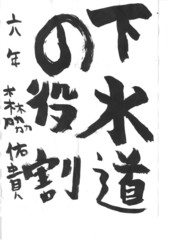 下水道
の役割
六年 森脇佑貴